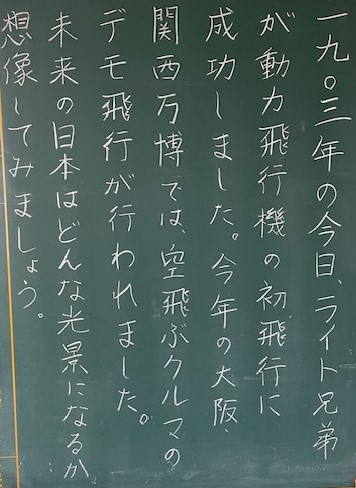 一九〇三年の今日、ライト兄弟
が動力飛行機の初飛行に
成功しました。今年の大阪・
関西万博では、空飛ぶクルマの
デモ飛行が行われました。
未来の日本はどんな光景になるか
想像してみましょう。